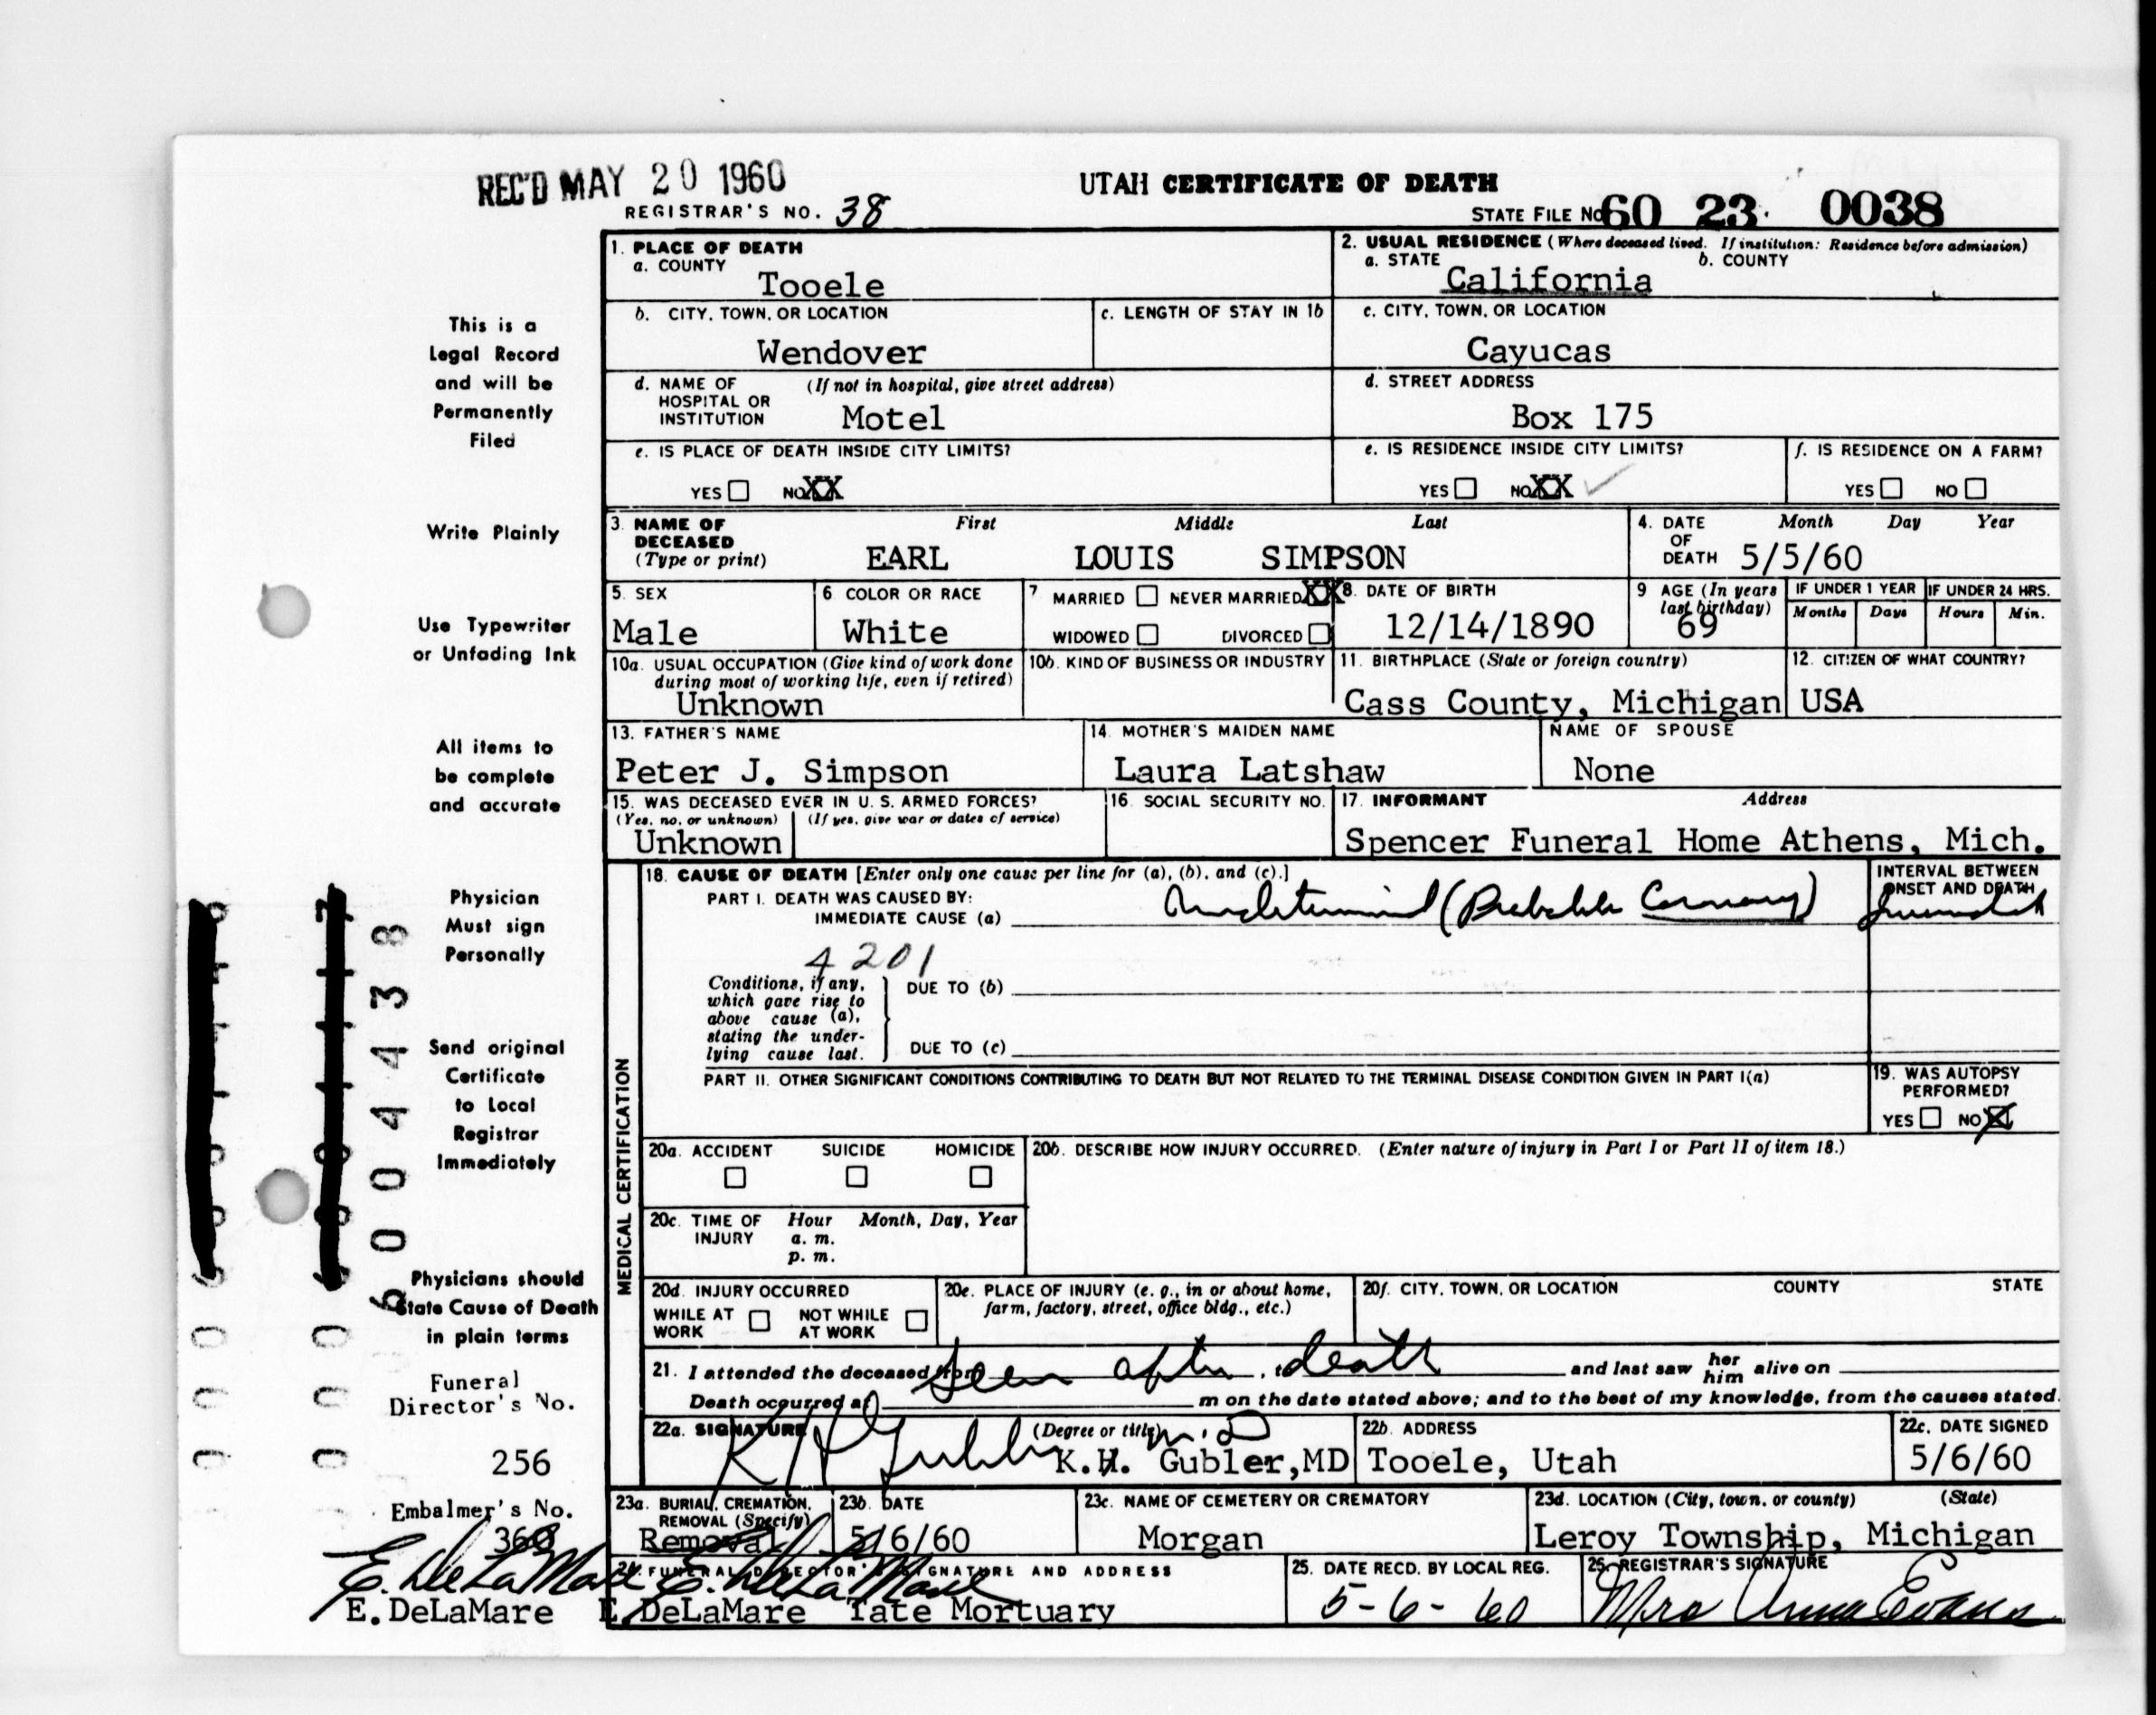 REC'D MAY 20 1960
UTAH CERTIFICATE OF DEATH
REGISTRAR'S NO. 38
STATE FILE NO. 60 23 0038
This is a
Legal Record
and will be
Permanently
Filed
Write Plainly
Use Typewriter
or Unfading Ink
All items to
be complete
and accurate
Physician
Must sign
Personally
Send original
Certificate
to Local
Registrar
Immediately
Physicians should
State Cause of Death
in plain terms
Funeral
Director's No.
256
Embalmer's No.
368
E. DeLaMare
E. DeLaMare
6004438
1. PLACE OF DEATH
a. COUNTY
Tooele
2. USUAL RESIDENCE (Where deceased lived. If institution: Residence before admission)
a. STATE b. COUNTY
California
b. CITY, TOWN, OR LOCATION
Wendover
c. LENGTH OF STAY IN 1b
c. CITY, TOWN, OR LOCATION
Cayucas
d. NAME OF (If not in hospital, give street address)
HOSPITAL OR
INSTITUTION Motel
d. STREET ADDRESS
Box 175
e. IS PLACE OF DEATH INSIDE CITY LIMITS?
YES NO XX
e. IS RESIDENCE INSIDE CITY LIMITS?
YES NO XX
f. IS RESIDENCE ON A FARM?
YES NO
3. NAME OF First Middle Last
DECEASED
(Type or print) EARL LOUIS SIMPSON
4. DATE Month Day Year
OF
DEATH 5/5/60
5. SEX
Male
6 COLOR OR RACE
White
7 MARRIED NEVER MARRIED XX
WIDOWED DIVORCED
8. DATE OF BIRTH
12/14/1890
9 AGE (In years
last birthday)
69
IF UNDER 1 YEAR
Months Days
IF UNDER 24 HRS.
Hours Min.
10a. USUAL OCCUPATION (Give kind of work done
during most of working life, even if retired)
Unknown
10b. KIND OF BUSINESS OR INDUSTRY
11. BIRTHPLACE (State or foreign country)
Cass County, Michigan
12. CITIZEN OF WHAT COUNTRY?
USA
13. FATHER'S NAME
Peter J. Simpson
14. MOTHER'S MAIDEN NAME
Laura Latshaw
NAME OF SPOUSE
None
15. WAS DECEASED EVER IN U. S. ARMED FORCES?
(Yes, no, or unknown) (If yes, give war or dates of service)
Unknown
16. SOCIAL SECURITY NO.
17. INFORMANT Address
Spencer Funeral Home Athens, Mich.
MEDICAL CERTIFICATION
18. CAUSE OF DEATH [Enter only one cause per line for (a), (b), and (c).]
PART I. DEATH WAS CAUSED BY:
IMMEDIATE CAUSE (a) Undetermined (Probable Coronary)
INTERVAL BETWEEN
ONSET AND DEATH
4201
Conditions, if any,
which gave rise to
above cause (a),
stating the under-
lying cause last.
DUE TO (b)
DUE TO (c)
PART II. OTHER SIGNIFICANT CONDITIONS CONTRIBUTING TO DEATH BUT NOT RELATED TO THE TERMINAL DISEASE CONDITION GIVEN IN PART I(a)
19. WAS AUTOPSY
PERFORMED?
YES NO X
20a. ACCIDENT SUICIDE HOMICIDE
20b. DESCRIBE HOW INJURY OCCURRED. (Enter nature of injury in Part I or Part II of item 18.)
20c. TIME OF Hour Month, Day, Year
INJURY a. m.
p. m.
20d. INJURY OCCURRED
WHILE AT NOT WHILE
WORK AT WORK
20e. PLACE OF INJURY (e. g., in or about home,
farm, factory, street, office bldg., etc.)
20f. CITY, TOWN, OR LOCATION COUNTY STATE
21. I attended the deceased from seen after death and last saw her him alive on
Death occurred at m on the date stated above; and to the best of my knowledge, from the causes stated.
22a. SIGNATURE (Degree or title)
K H Gubler M.D
K.H. Gubler,MD
22b. ADDRESS
Tooele, Utah
22c. DATE SIGNED
5/6/60
23a. BURIAL, CREMATION,
REMOVAL (Specify)
Removal
23b. DATE
5/6/60
23c. NAME OF CEMETERY OR CREMATORY
Morgan
23d. LOCATION (City, town, or county) (State)
Leroy Township, Michigan
24. FUNERAL DIRECTOR'S SIGNATURE AND ADDRESS
E. DeLaMare
E. DeLaMare Tate Mortuary
25. DATE RECD. BY LOCAL REG.
5-6-60
26. REGISTRAR'S SIGNATURE
Mrs Anna Evans